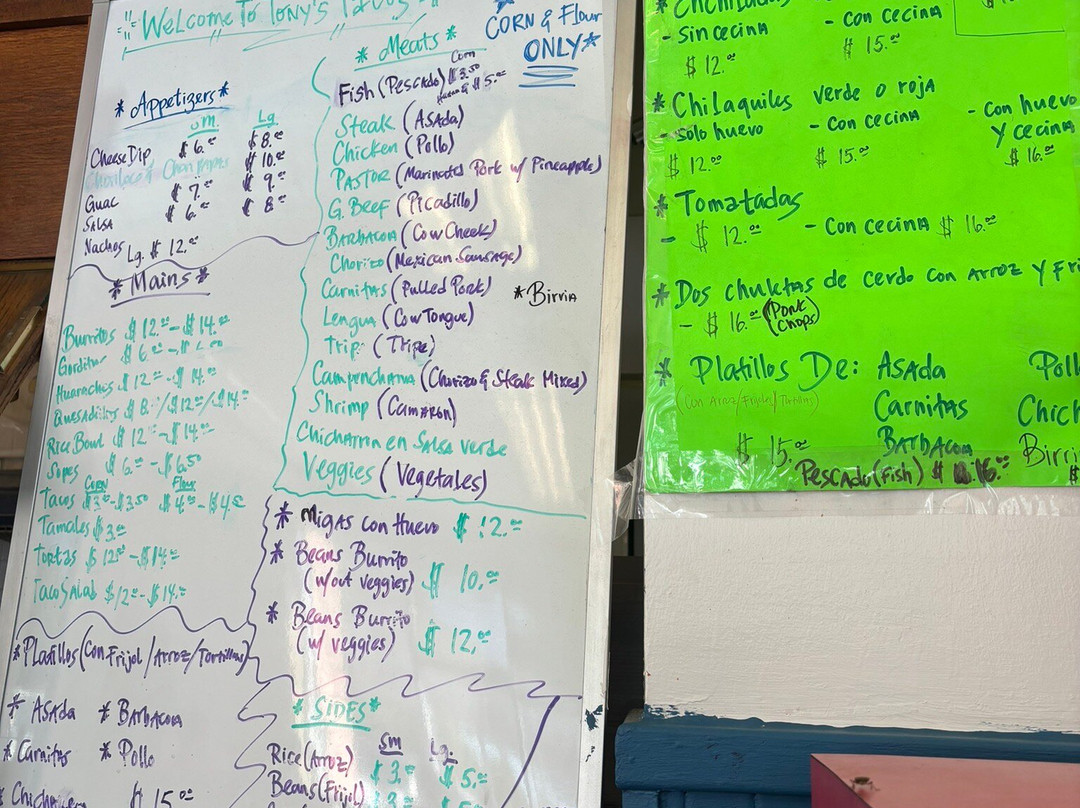 Welcome To Tony's Tacos
* CORN & Flour
ONLY *
* Appetizers *
Sm. Lg.
Cheese Dip $6.00 $8.00
$10.00
Guac $7.00 $9.00
SALSA $6.00 $8.00
Nachos Lg. $12.00
* Mains *
Burritos $12.00-$14.00
Gorditas $6.00
Huaraches $12.00-$14.00
Quesadillas $8/$12.00/$14.00
Rice Bowl $12-$14.00
Sopes $6.00-$6.50
CORN Flour
Tacos $3.00-$3.50 $4.00-$4.50
Tamales $3.00
Tortas $12.00-$14.00
Taco Salad $12.00-$14.00
* Platillos (Con Frijol/Arroz/Tortillas)
* ASAda * BArbAcoA
* Carnitas * Pollo
$15.00
* Meats *
Corn
Fish (Pescado) $3.50
$5.00
Steak (ASAda)
Chicken (Pollo)
PASTOR (Marinated Pork w/ Pineapple)
G. Beef (Picadillo)
BARBACOA (Cow Cheek)
Chorizo (Mexican Sausage)
Carnitas (Pulled Pork) * Birria
Lengua (Cow Tongue)
Trip (Tripe)
Campenchana (Chorizo & Steak Mixed)
Shrimp (Camaron)
Chicharrn en SALSA verde
Veggies (Vegetales)
* Migas con Huevo $12.00
* Beans Burrito
(w/out veggies) $10.00
* Beans Burrito
(w/ veggies) $12.00
* SIDES *
Sm Lg.
Rice (Arroz) $3.00 $5.00
Beans (Frijol)
- Sin cecina - Con cecina
$12.00 $15.00
* Chilaquiles verde o roja
- solo huevo - Con cecina - Con huevo
y cecina
$12.00 $15.00 $16.00
* Tomatadas
- $12.00 - Con cecina $16.00
* Dos chuletas de cerdo con Arroz y Fri
- $16.00 (Pork Chops)
* Platillos De: ASAda Poll
(Con Arroz/Frijoles/Tortillas) Carnitas Chich
$15.00 BArbAcoA Birri
Pescado (Fish) $16.00